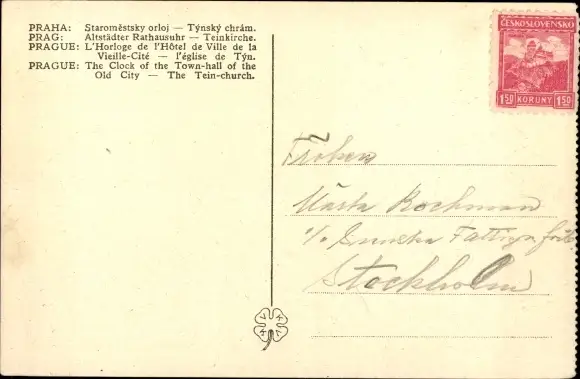 PRAHA: Staroměstsky orloj — Týnský chrám.
PRAG: Altstädter Rathausuhr — Teinkirche.
PRAGUE: L'Horloge de l'Hôtel de Ville de la
Vieille-Cité — l'église de Týn.
PRAGUE: The Clock of the Town-hall of the
Old City — The Tein-church.
ČESKOSLOVENSKO
1·50 KORUNY 1·50
Fröken
Märta Rochman
c/o Svenska
Stockholm